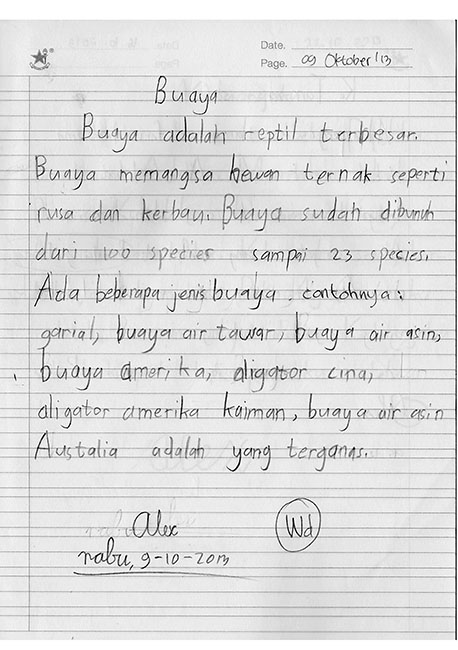 Date.
Page. 09 Oktober '13
Buaya
Buaya adalah reptil terbesar.
Buaya memangsa hewan ternak seperti
rusa dan kerbau. Buaya sudah dibunuh
dari 100 species sampai 23 species.
Ada beberapa jenis buaya, contohnya:
garial, buaya air tawar, buaya air asin,
buaya amerika, aligator cina,
aligator amerika kaiman, buaya air asin
Austalia adalah yang terganas.
Alex
rabu, 9-10-2013
Wd